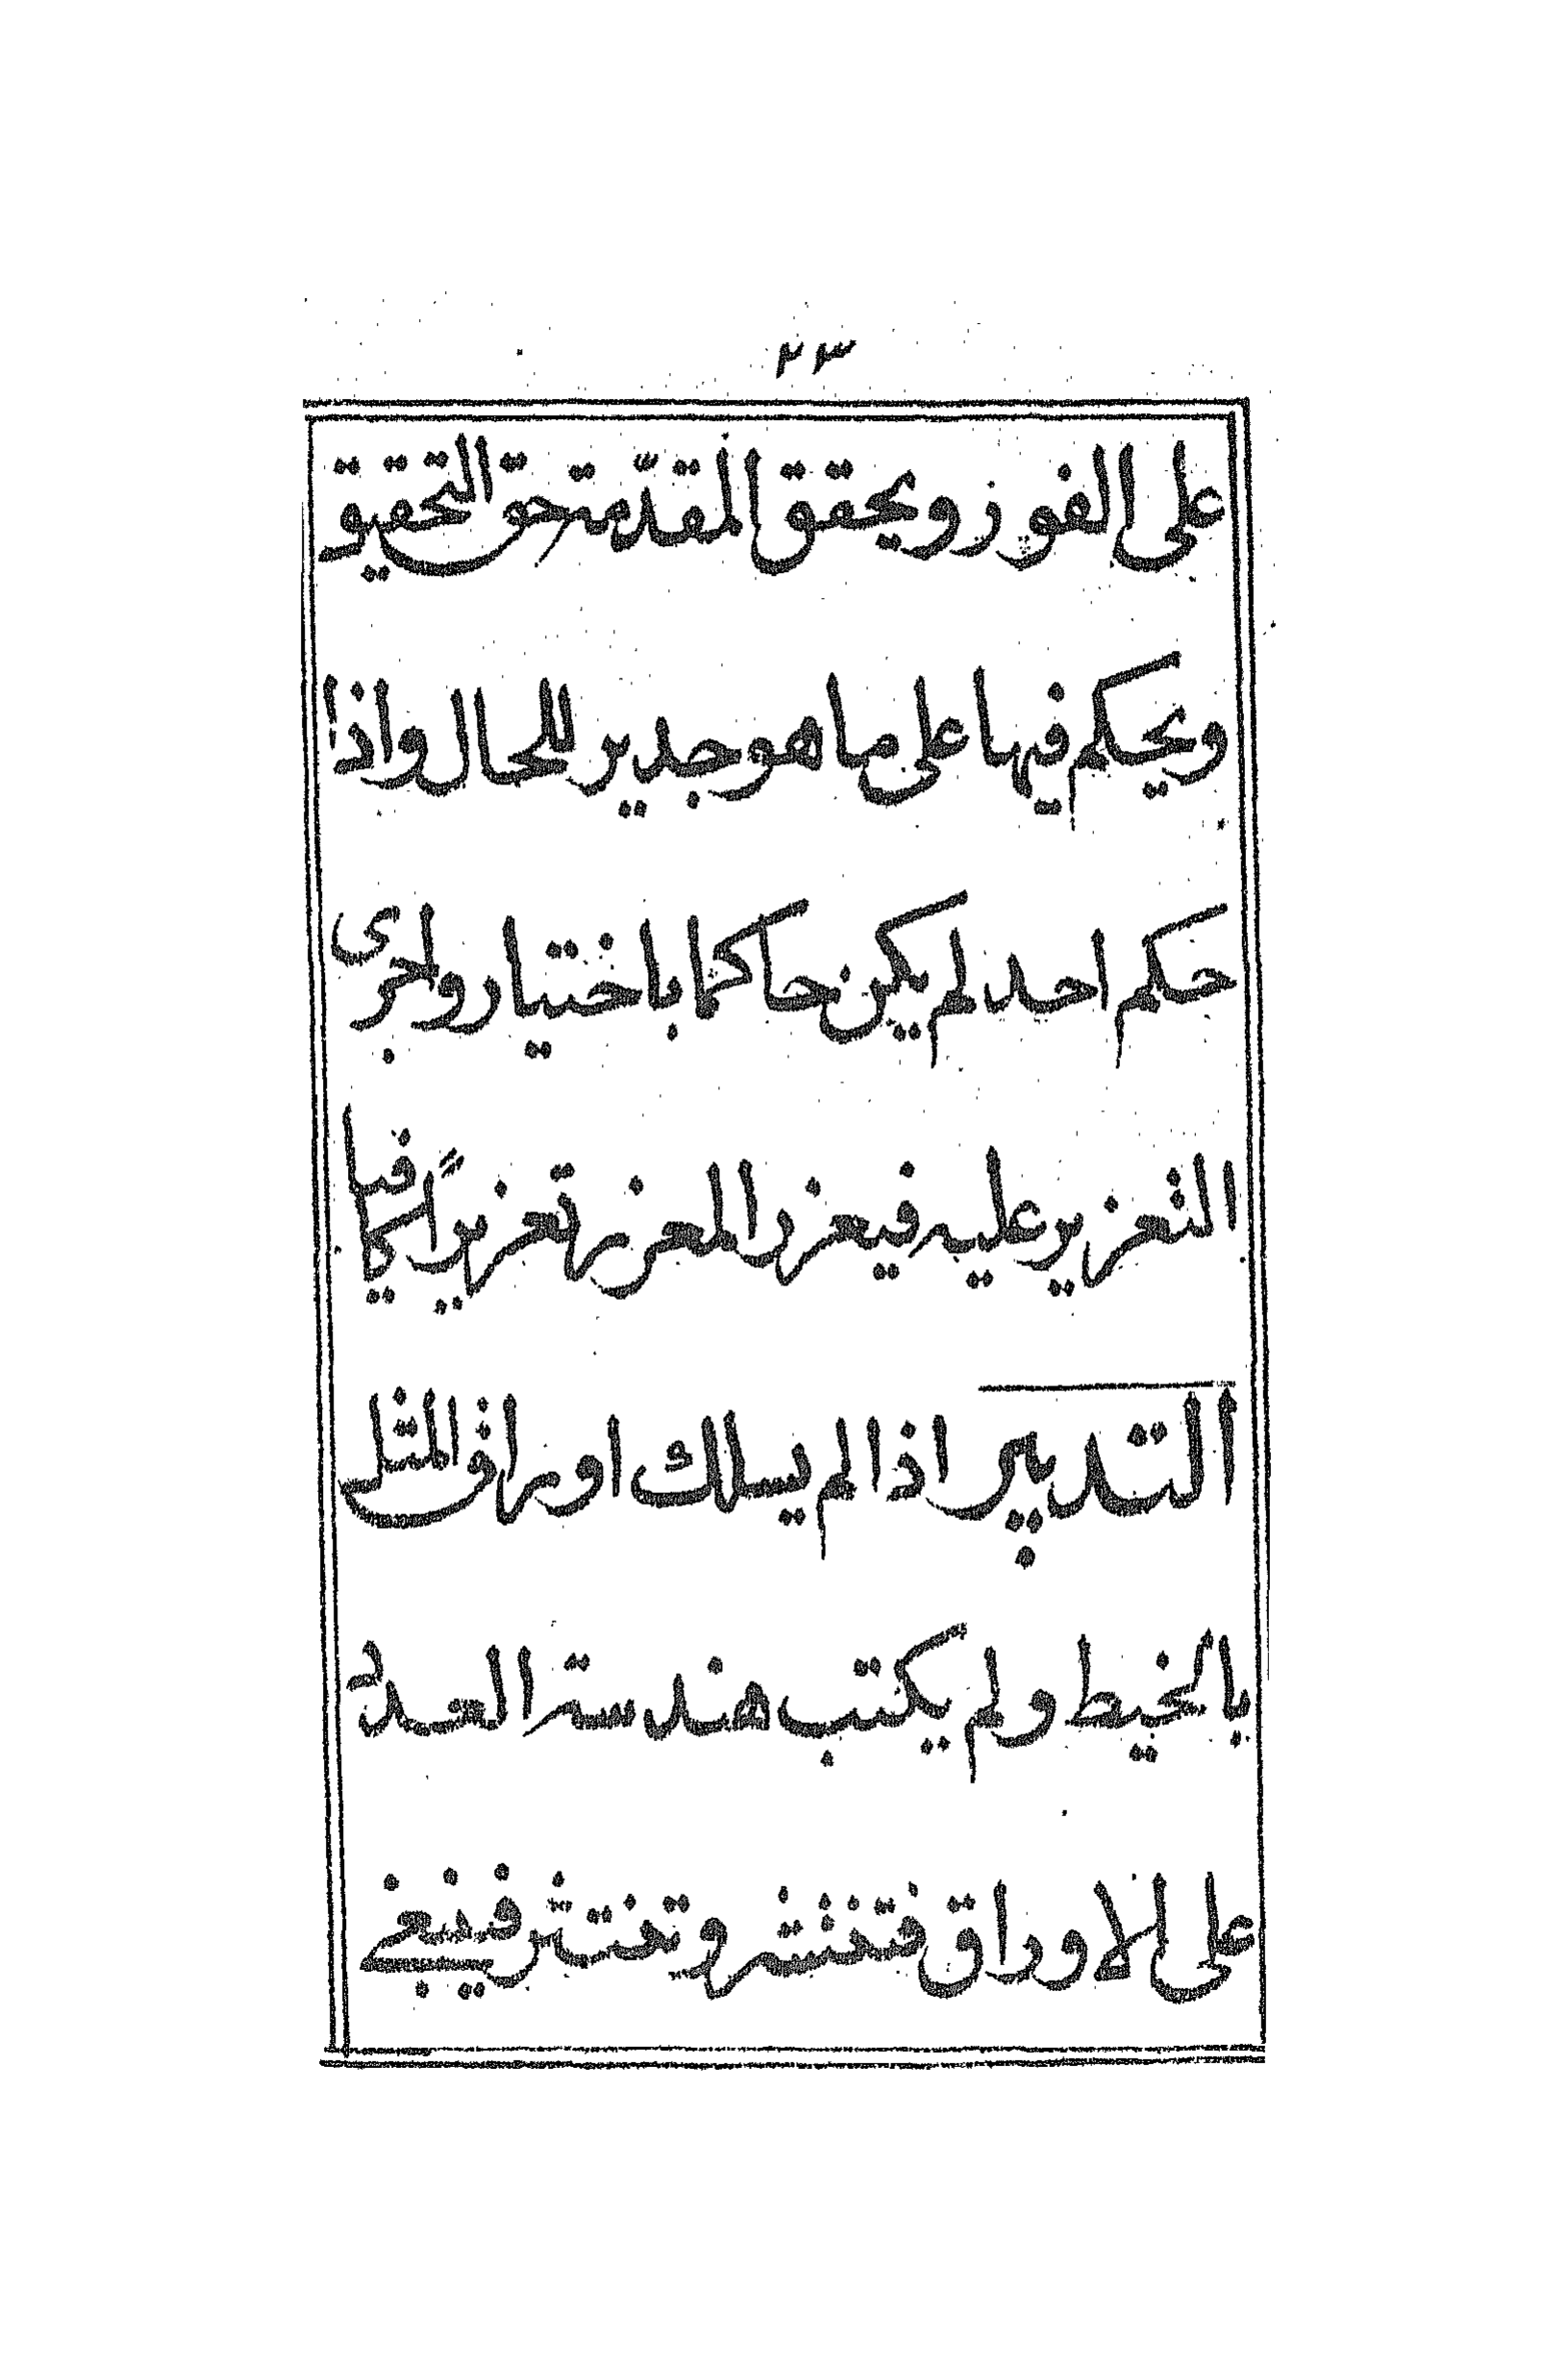 ٢٣
على الفور ويحقق المقدّمة حق التحقيق
ويحكم فيها على ما هو جدير للحال واذا
حكم احد لم يكن حاكما باختيار واجرى
التعزير عليه فيعزر المعزر تعزيرًا كافيا
التدبير اذا لم يسلك اوراق المثل
بالخيط ولم يكتب هندسة العدد
على الاوراق فتنتشر وتنتثر فينبغي